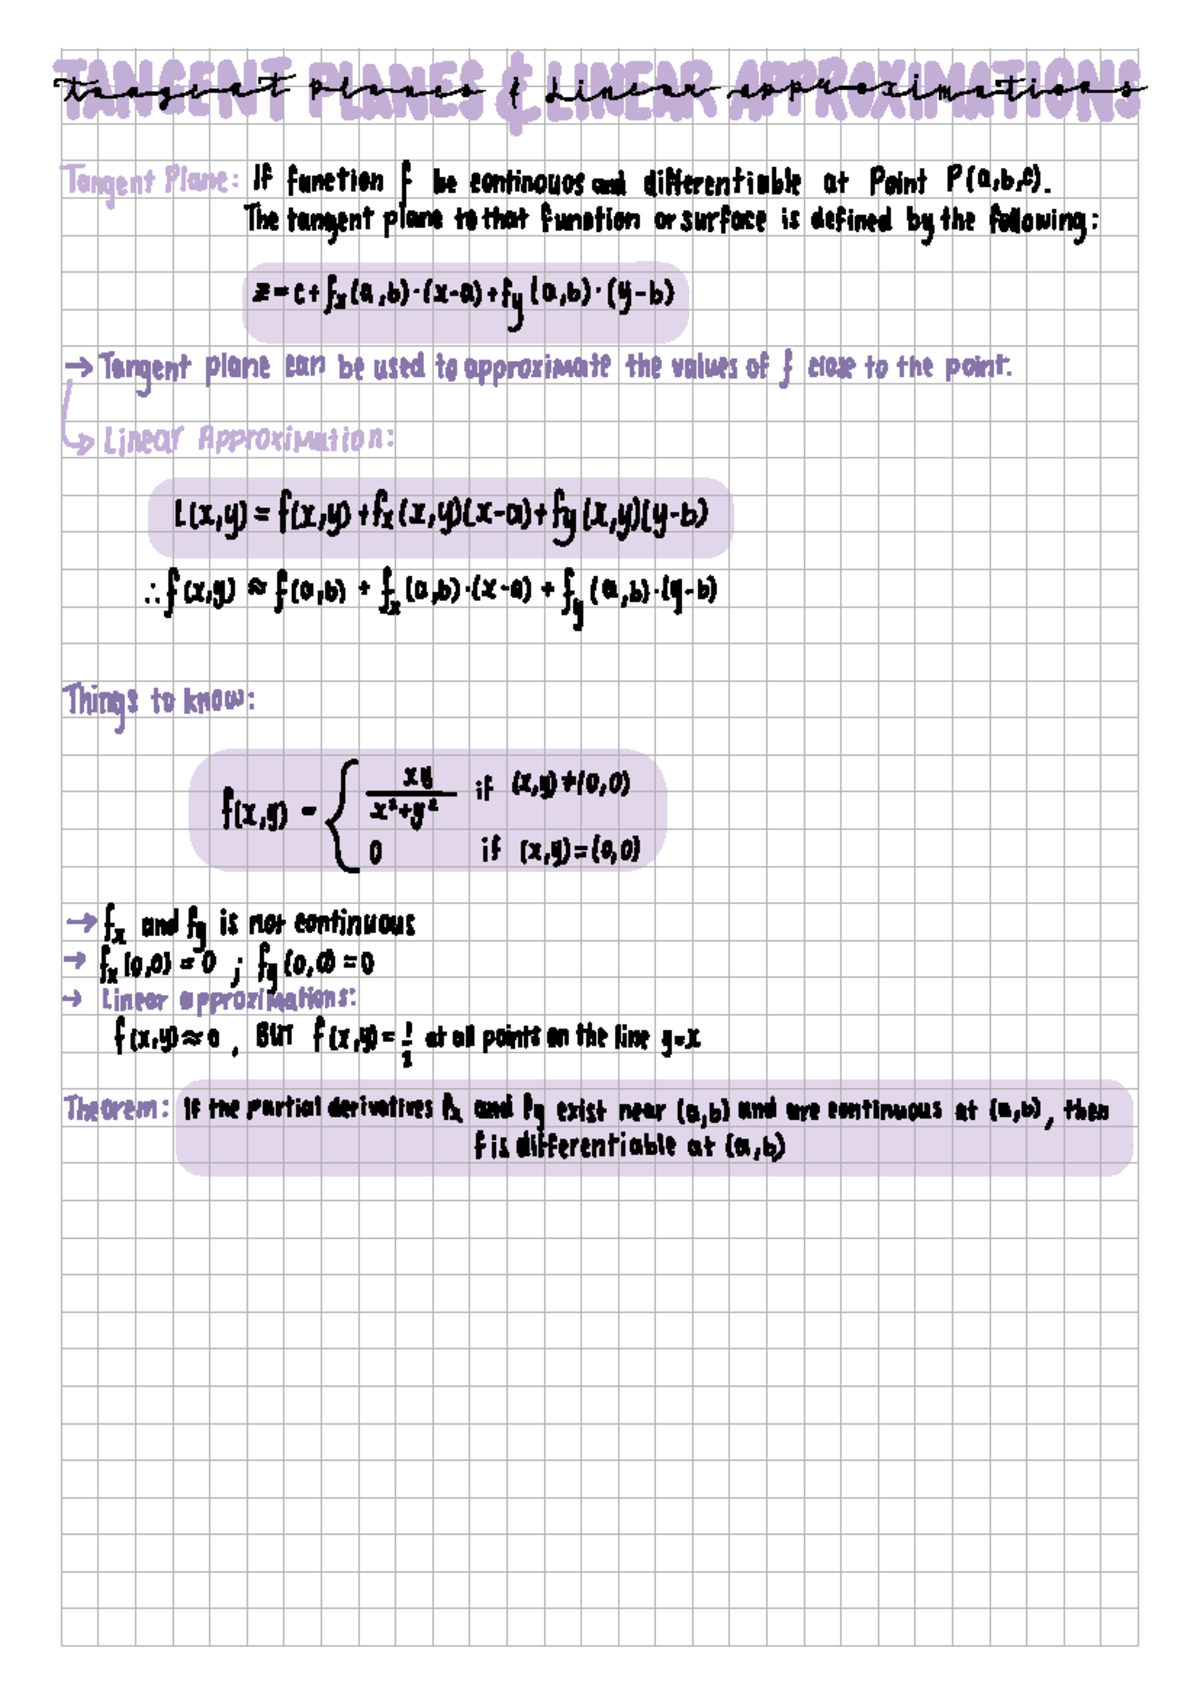 TANGENT PLANES & LINEAR APPROXIMATIONS
tangent planes & Linear approximations
Tangent Plane: If function f be continouos and differentiable at Point P(a,b,c).
The tangent plane to that function or surface is defined by the following:
z = c + fx(a,b)·(x-a) + fy(a,b)·(y-b)
→ Tangent plane can be used to approximate the values of f close to the point.
↳ Linear Approximation:
L(x,y) = f(x,y) + fx(x,y)(x-a) + fy(x,y)(y-b)
∴ f(x,y) ≈ f(a,b) + fx(a,b)·(x-a) + fy(a,b)·(y-b)
Things to know:
f(x,y) = { xy/x²+y² if (x,y) ≠ (0,0)
0 if (x,y) = (0,0)
→ fx and fy is not continuous
→ fx(0,0) = 0 ; fy(0,0) = 0
→ Linear approximations:
f(x,y) ≈ 0 , BUT f(x,y) = 1/2 at all points on the line y=x
Theorem: If the partial derivatives fx and fy exist near (a,b) and are continuous at (a,b), then
f is differentiable at (a,b)